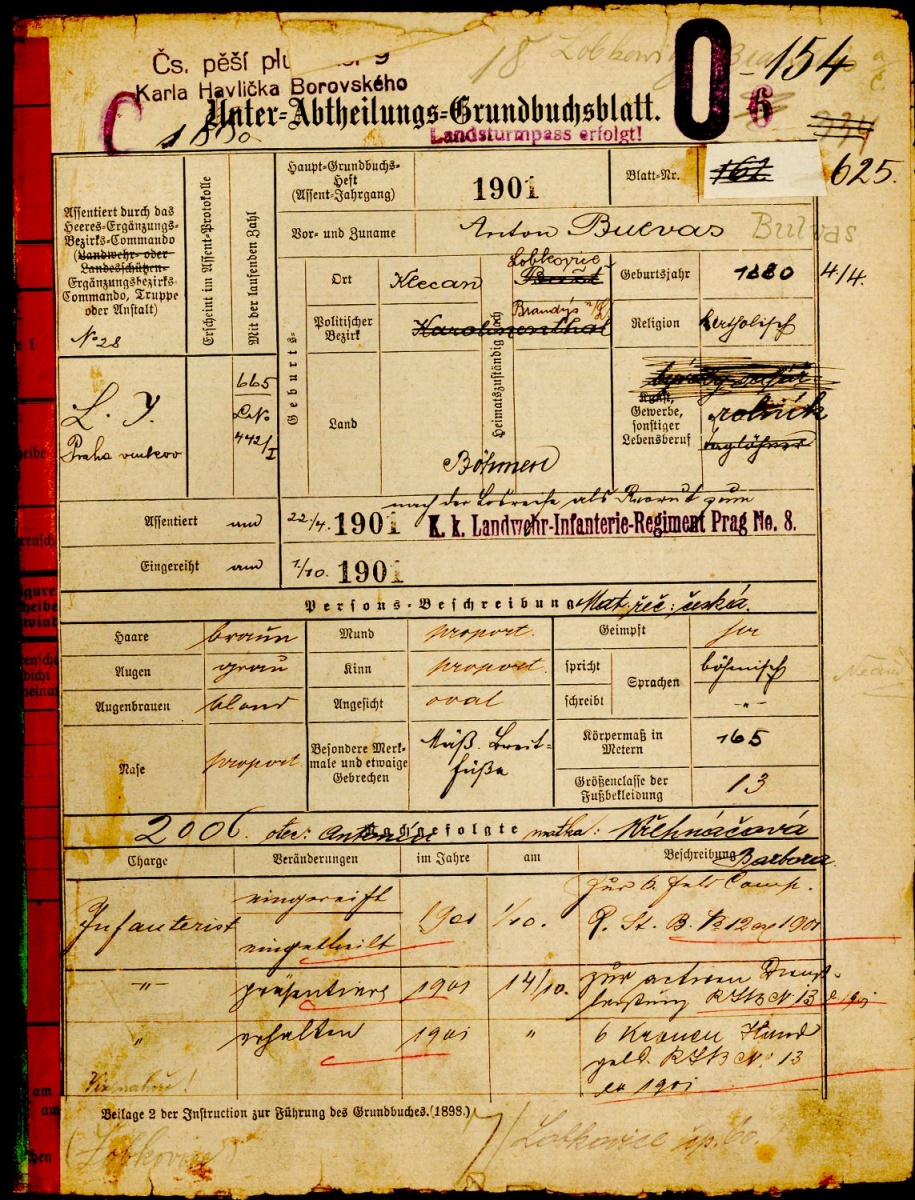 Čs. pěší plu 9
Karla Havlíčka Borovského
18 Lobkowitz
0 - 154
6
C
1880
Unter-Abtheilungs-Grundbuchsblatt.
Landsturmpass erfolgt!
734
Assentiert durch das Heeres-Ergänzungs-Bezirks-Commando (Landwehr- oder Landesschützen-Ergänzungsbezirks-Commando, Truppe oder Anstalt)
No 28
Erscheint im Assent-Protokolle
Mit der laufenden Zahl
Haupt-Grundbuchs-Heft (Assent-Jahrgang) 1901
Blatt-Nr. 162 625.
Vor- und Zuname Anton Bulvas Bulvas
Geburts-
Ort Klecan
Heimatszuständig nach
Lobkovic
Geburtsjahr 1880 4/4.
Politischer Bezirk Karolinenthal
Brandýs n/L
Religion katholisch
Land Böhmen
Kunst, Gewerbe, sonstiger Lebensberuf
rolník
taglöhner
L. Y.
Praha venkov
665
442/I
Assentiert am 22/4. 1901
nach der Losreihe als Recrut zum
K. k. Landwehr-Infanterie-Regiment Prag No. 8.
Eingereiht am 1/10. 1901
Persons-Beschreibung Mat. řeč: česká.
Haare braun
Mund proport.
Geimpft ja
Augen grau
Kinn proport.
spricht
Sprachen
böhmisch
Augenbrauen blond
Angesicht oval
schreibt
-"-
Nase proport
Besondere Merkmale und etwaige Gebrechen
Mäß. Breitfüße
Körpermaß in Metern 165
Größenclasse der Fußbekleidung 13
2006. otec: Antonín
Nachgefolgte
matka: Křehnáčová
Barbora
Charge
Veränderungen
im Jahre
am
Beschreibung
Infanterist
eingereiht
eingetheilt
1901
1/10.
zur 6. Feld Comp.
-"-
präsentiert
1901
14/10.
zur activen Dienstleistung
No 13
"
erhalten
1901
"
6 Kronen Handgeld.
No: 13
1901
Beilage 2 der Instruction zur Führung des Grundbuches. (1898.)
(Lobkovice)
Lobkovice čp. 60.